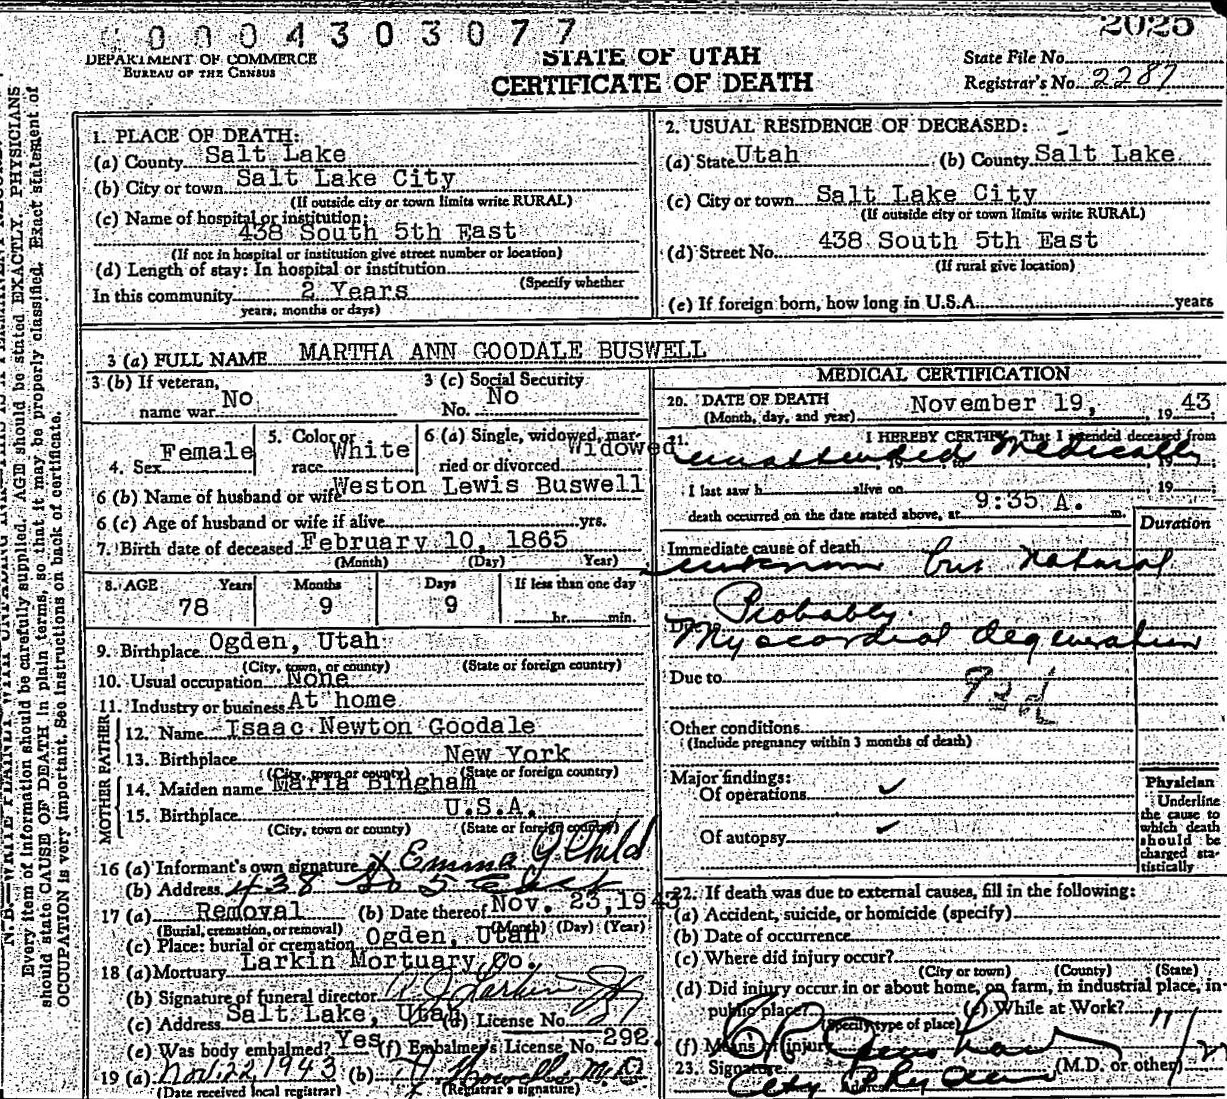 0 0 0 4 3 0 3 0 7 7
2025
DEPARTMENT OF COMMERCE
BUREAU OF THE CENSUS
STATE OF UTAH
CERTIFICATE OF DEATH
State File No.
Registrar's No. 2287
1. PLACE OF DEATH:
(a) County Salt Lake
(b) City or town Salt Lake City
(If outside city or town limits write RURAL)
(c) Name of hospital or institution:
438 South 5th East
(If not in hospital or institution give street number or location)
(d) Length of stay: In hospital or institution
(Specify whether
In this community 2 Years
years, months or days)
2. USUAL RESIDENCE OF DECEASED:
(a) State Utah (b) County Salt Lake
(c) City or town Salt Lake City
(If outside city or town limits write RURAL)
(d) Street No. 438 South 5th East
(If rural give location)
(e) If foreign born, how long in U.S.A. years
3 (a) FULL NAME MARTHA ANN GOODALE BUSWELL
3 (b) If veteran, name war No
3 (c) Social Security No. No
4. Sex Female
5. Color or race White
6 (a) Single, widowed, married or divorced Widowed
6 (b) Name of husband or wife Weston Lewis Buswell
6 (c) Age of husband or wife if alive yrs.
7. Birth date of deceased February 10, 1865
(Month) (Day) (Year)
8. AGE Years Months Days If less than one day
78 9 9 hr. min.
9. Birthplace Ogden, Utah
(City, town, or county) (State or foreign country)
10. Usual occupation None
11. Industry or business At home
FATHER
12. Name Isaac Newton Goodale
13. Birthplace New York
(City, town or county) (State or foreign country)
MOTHER
14. Maiden name Maria Bingham
15. Birthplace U.S.A.
(City, town or county) (State or foreign country)
16 (a) Informant's own signature x Emma G Child
(b) Address 438 So 5 East
17 (a) Removal (b) Date thereof Nov. 23, 1943
(Burial, cremation, or removal) (Month) (Day) (Year)
(c) Place: burial or cremation Ogden, Utah
18 (a) Mortuary Larkin Mortuary Co.
(b) Signature of funeral director
(c) Address Salt Lake, Utah (d) License No.
(e) Was body embalmed? Yes (f) Embalmer's License No. 292.
19 (a) Nov. 22 1943 (b) Howells M.D.
(Date received local registrar) (Registrar's signature)
MEDICAL CERTIFICATION
20. DATE OF DEATH
(Month, day, and year) November 19, 19 43
21. I HEREBY CERTIFY, That I attended deceased from
unattended Medically
19 , to , 19
I last saw h alive on , 19
death occurred on the date stated above, at 9:35 A. m.
Duration
Immediate cause of death
unknown but natural
Probably
Myocardial degeneration
Due to
92d
Other conditions
(Include pregnancy within 3 months of death)
Major findings:
Of operations ✓
Of autopsy ✓
Physician
Underline
the cause to
which death
should be
charged sta-
tistically
22. If death was due to external causes, fill in the following:
(a) Accident, suicide, or homicide (specify)
(b) Date of occurrence
(c) Where did injury occur?
(City or town) (County) (State)
(d) Did injury occur in or about home, on farm, in industrial place, in
public place? (e) While at Work?
(Specify type of place)
(f) Means of injury
23. Signature (M.D. or other)
City Physician
Every item of information should be carefully supplied. AGE should be stated EXACTLY. PHYSICIANS
should state CAUSE OF DEATH in plain terms, so that it may be properly classified. Exact statement of
OCCUPATION is very important. See instructions on back of certificate.